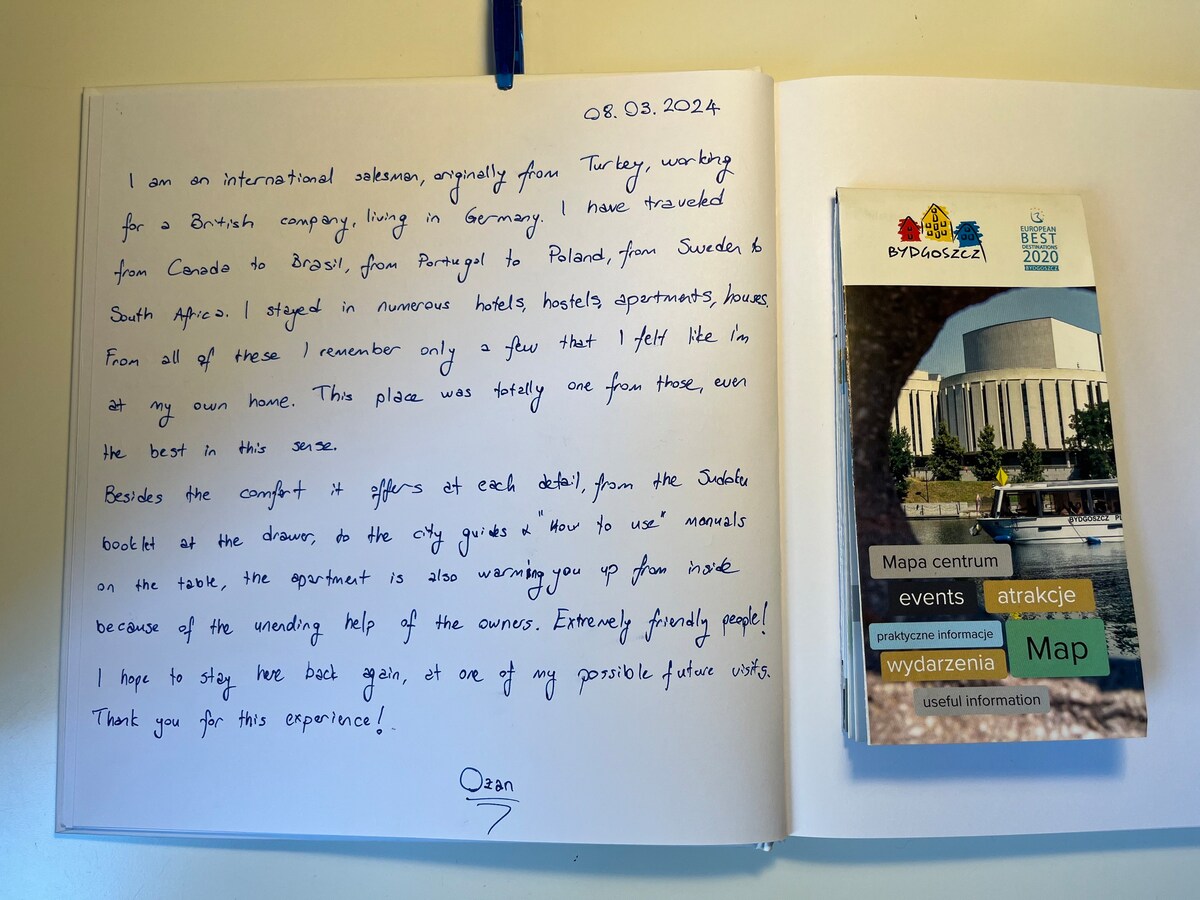 08.03.2024
I am an international salesman, originally from Turkey, working
for a British company, living in Germany. I have traveled
from Canada to Brasil, from Portugal to Poland, from Sweden to
South Africa. I stayed in numerous hotels, hostels, apartments, houses.
From all of these I remember only a few that I felt like i'm
at my own home. This place was totally one from those, even
the best in this sense.
Besides the comfort it offers at each detail, from the Sudoku
booklet at the drawer, to the city guides & "How to use" manuals
on the table, the apartment is also warming you up from inside
because of the unending help of the owners. Extremely friendly people!
I hope to stay here back again, at one of my possible future visits.
Thank you for this experience!
Ozan
BYDGOSZCZ
EUROPEAN
BEST
DESTINATIONS
2020
BYDGOSZCZ
BYDGOSZCZ
Mapa centrum
events
atrakcje
praktyczne informacje
Map
wydarzenia
useful information